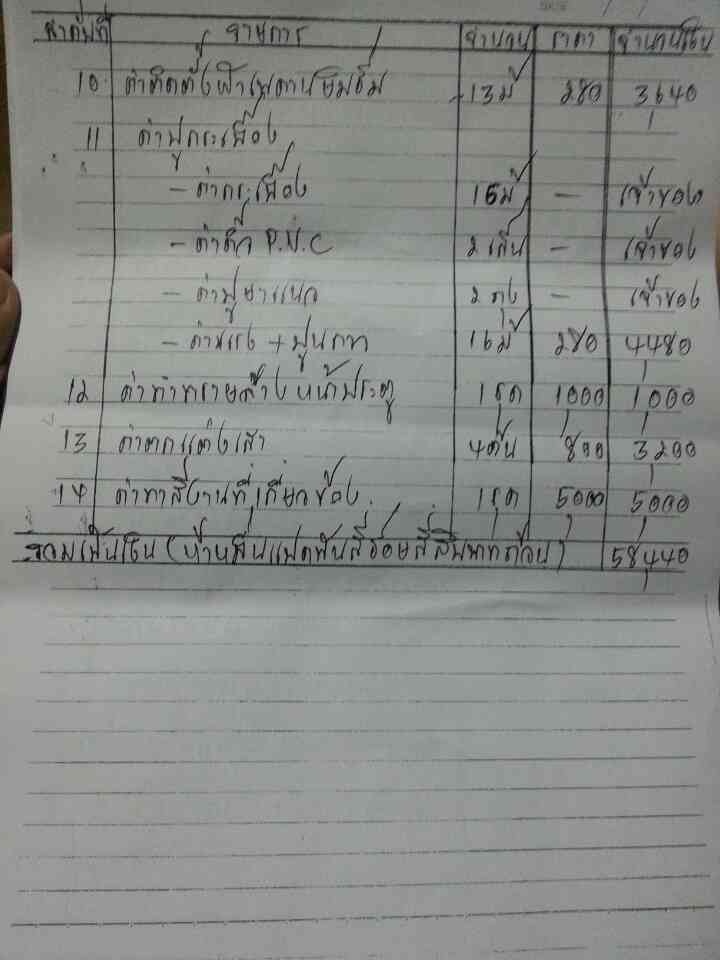 ลำดับที่ รายการ จำนวน ราคา จำนวนเงิน
10 ค่าติดตั้งฝ้าเพดานยิมซั่ม 13ม² 280 3640
11 ค่าปูกระเบื้อง
- ค่ากระเบื้อง 16ม² - เจ้าของ
- ค่าคิ้ว P.V.C 2 เส้น - เจ้าของ
- ค่าปูยาแนว 2 ถุง - เจ้าของ
- ค่าแรง + ปูนกาว 16ม² 280 4480
12 ค่าทำทรายล้างหน้าประตู 1 ชุด 1000 1000
13 ค่าตกแต่งเสา 4ต้น 800 3200
14 ค่าทาสีงานที่เกี่ยวข้อง 1ชุด 5000 5000
รวมเป็นเงิน (ห้าหมื่นแปดพันสี่ร้อยสี่สิบบาทถ้วน) 58440